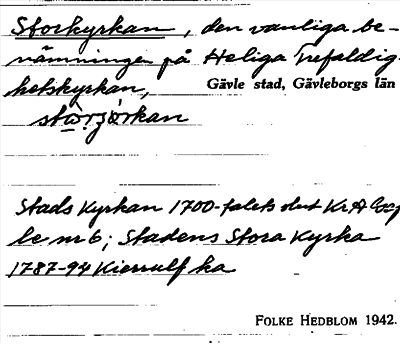 Storkyrkan, den vanliga be-
nämningen på Heliga Trefaldig-
hetskyrkan,
Gävle stad, Gävleborgs län
Stads Kyrkan 1700-talets slut Kr A
le nr 6; Stadens Stora Kyrka
1787-94 Kierrulf ka
FOLKE HEDBLOM 1942.